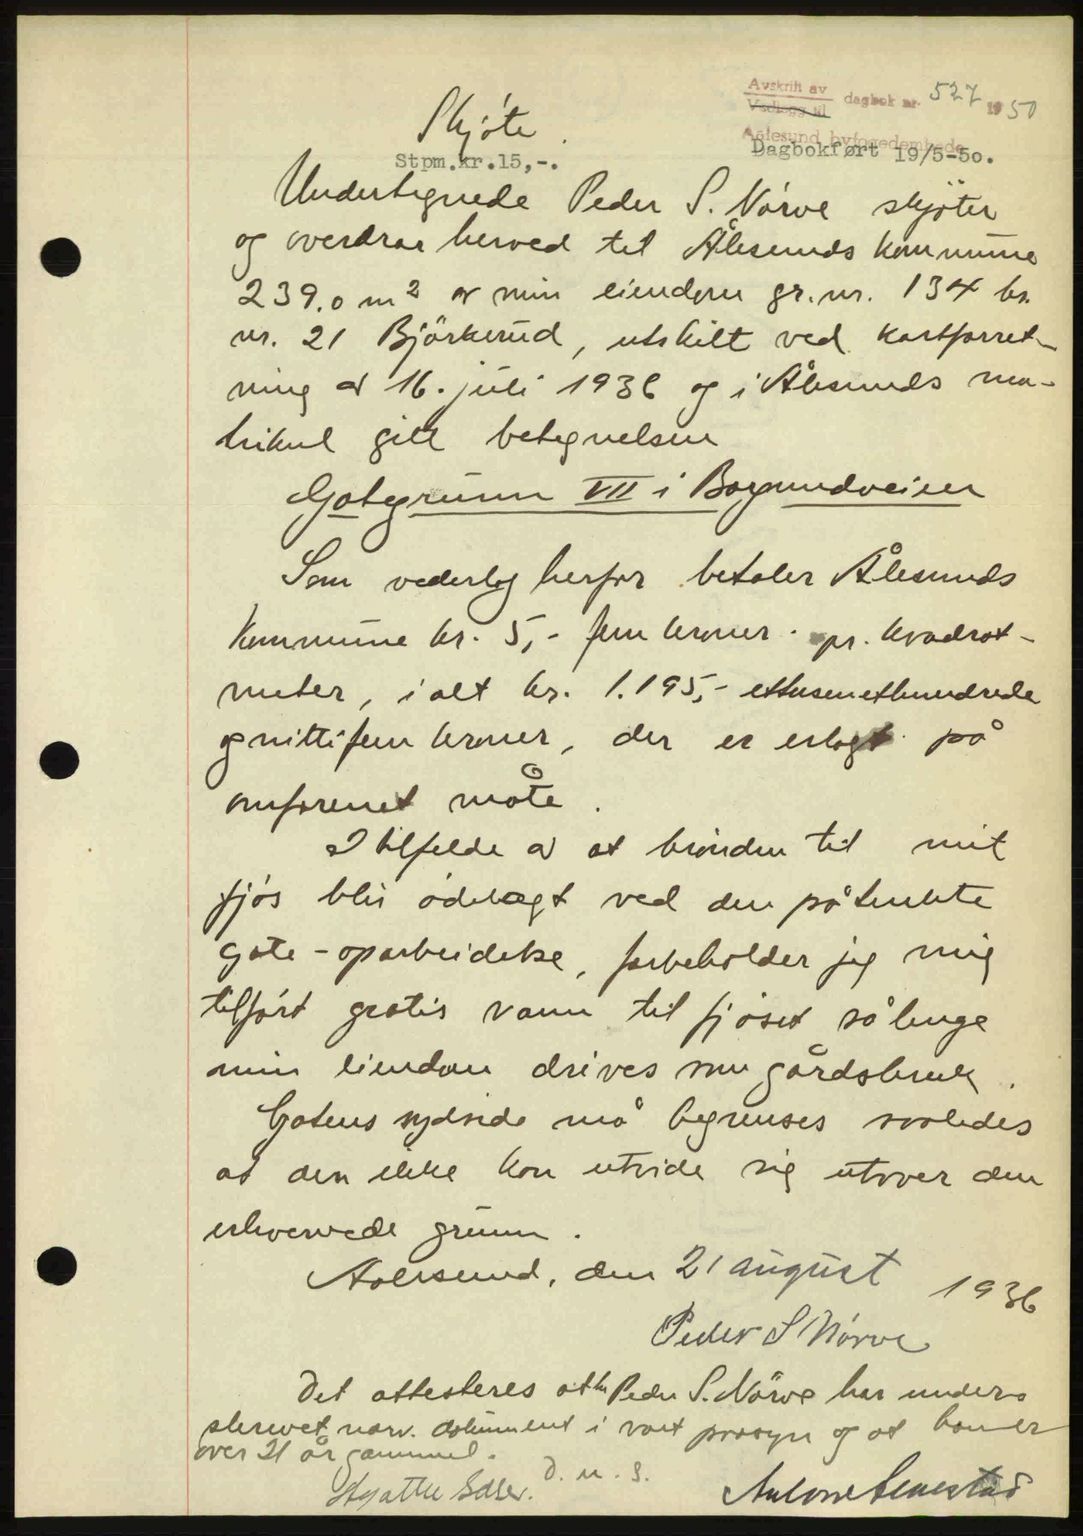 Avskrift av
Vedlegg til dagbok nr. 527 1950
Aalesund byfogedembede
Skjøte.
Stpm.kr.15,-.
Dagbokført 19/5-50.
Undertegnede Peder S. Nørve skjøter
og overdrar herved til Ålesunds kommune
239.0 m² av min eiendom gr.nr. 134 br.
nr. 21 Björkerud, utskilt ved kartforret-
ning av 16. juli 1936 og i Ålesunds ma-
trikul gitt betegnelsen
Gategrunn VII i Borgundveien
Som vederlag herfor betaler Ålesunds
kommune kr. 5,- fem kroner pr. kvadrat-
meter, i alt kr. 1.195,- ettusenethundrede
og nittifem kroner, der er erlagt på
omforenet måte.
I tilfelde av at brönden til mit
fjös blir ödelagt ved den påtenkte
gate-oparbeidelse, forbeholder jeg mig
tilfört gratis vann til fjöset så lenge
min eiendom drives som gårdsbruk.
Gatens sydside må begrenses saaledes
at den ikke kan utvide sig utover den
erhvervede grunn.
Aalesund, den 21 august 1936
Peder S Nørve
Det attesteres at hr Peder S. Nörve har under-
skrevet narv. dokument i vort paasyn og at han er
over 21 år gammel.
D. u. s.